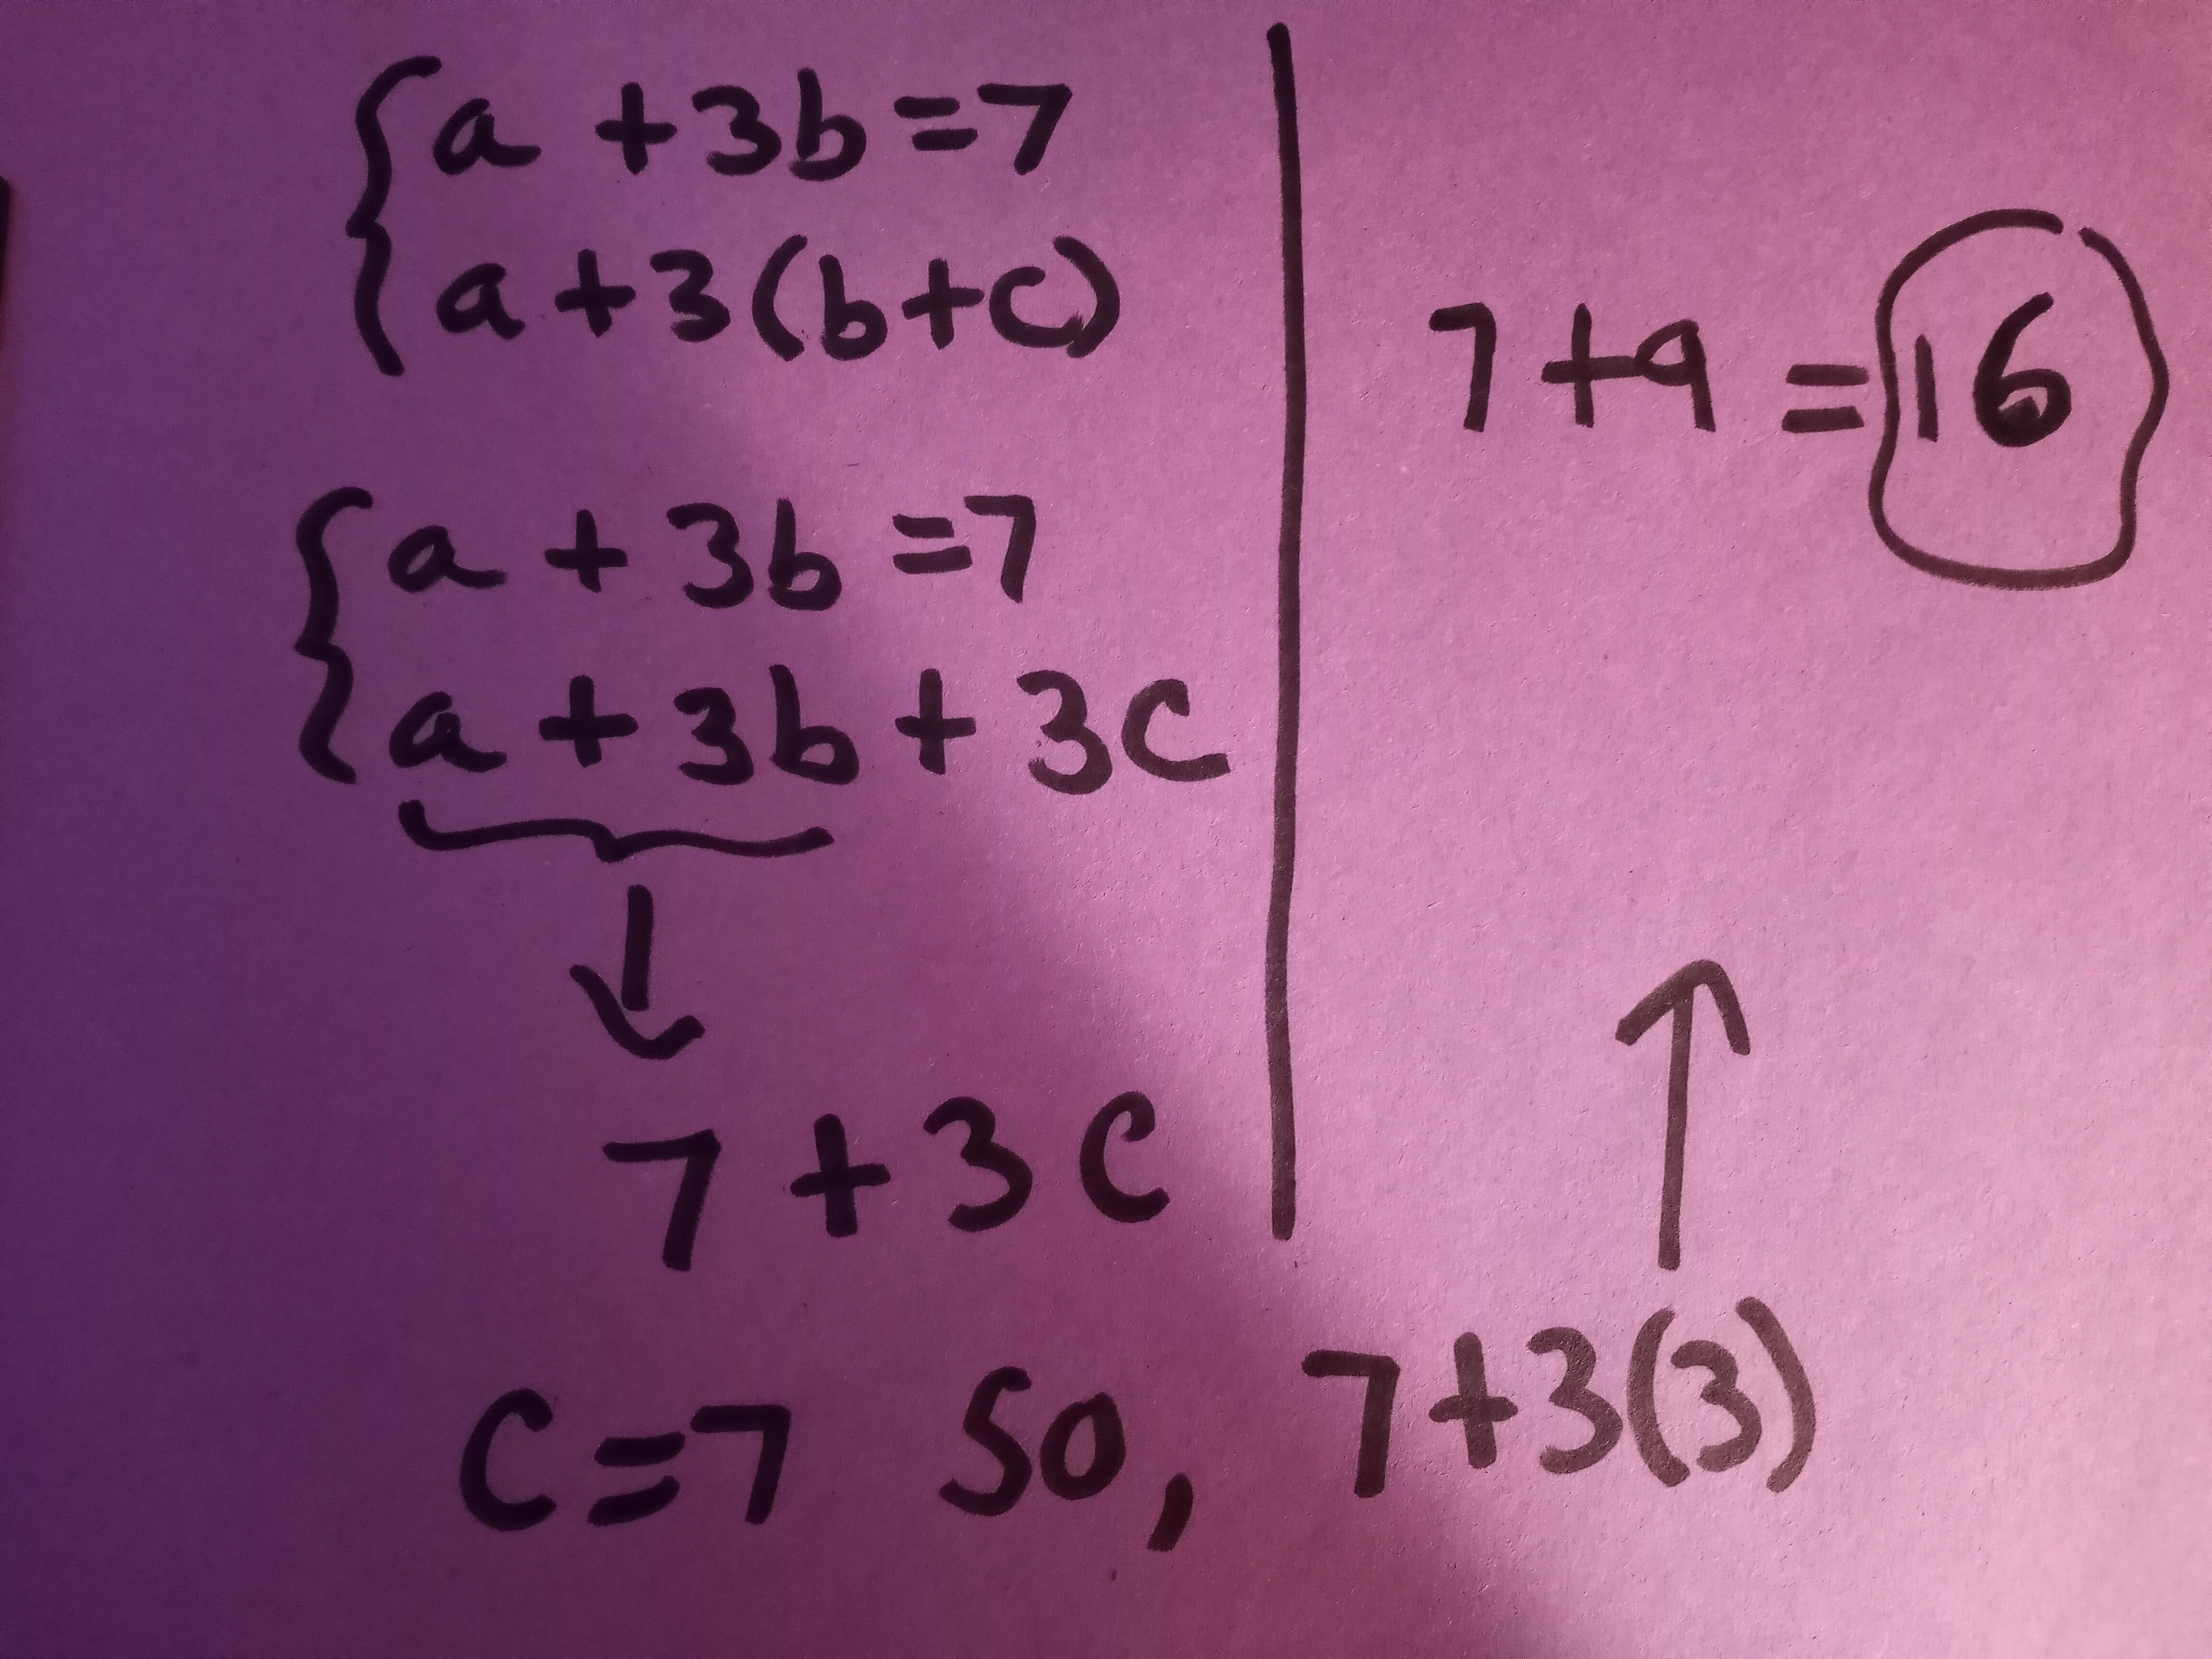 a + 3b = 7
a + 3(b + c)
a + 3b = 7
a + 3b + 3c
↓
7 + 3c
c = 7 So, 7 + 3(3)
↑
7 + 9 = 16